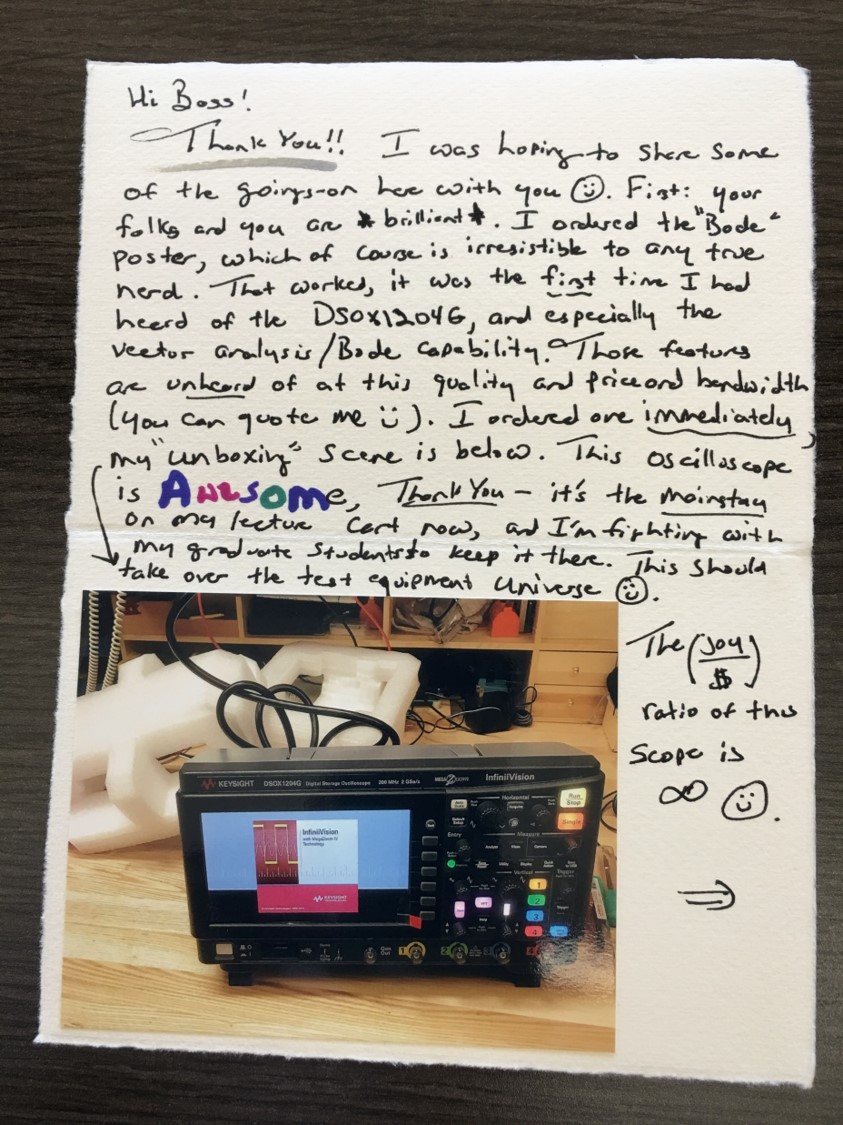 Hi Boss!
Thank You!! I was hoping to share some
of the goings-on here with you ☺. First: your
folks and you are *brilliant*. I ordered the "Bode"
poster, which of course is irresistible to any true
nerd. That worked, it was the first time I had
heard of the DSOX1204G, and especially the
vector analysis/Bode capability. Those features
are unheard of at this quality and price and bandwidth
(you can quote me ☺). I ordered one immediately,
my "unboxing" scene is below. This oscilloscope
is Awesome, Thank You – it's the mainstay
on my lecture cart now, and I'm fighting with
my graduate students to keep it there. This should
take over the test equipment universe ☺.
The (joy/$)
ratio of this
scope is
∞ ☺.
⇒
KEYSIGHT DSOX1204G Digital Storage Oscilloscope 200 MHz 2 GSa/s MEGA Zoom InfiniiVision
InfiniiVision
with MegaZoom IV
Technology
KEYSIGHT
Horizontal
Run
Stop
Single
Auto
Scale
Default
Setup
Entry
Measure
Vertical
Trigger
1
2
3
4
Gen
Out
1
2